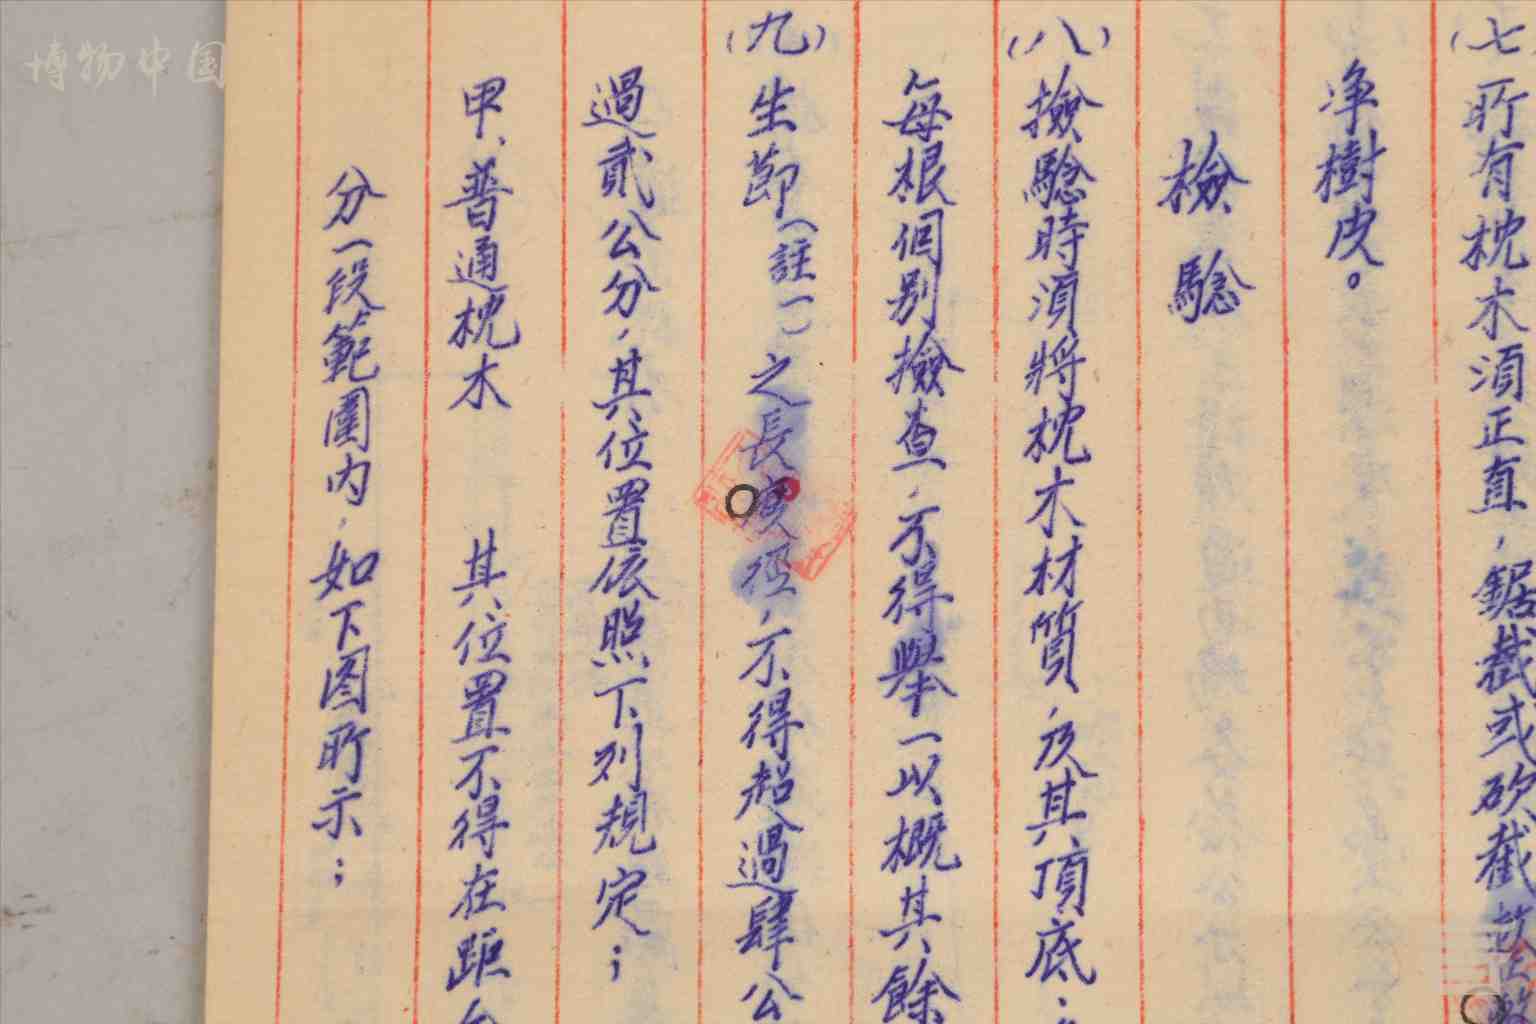 (七)所有枕木須正直，鋸截或砍截
净樹皮。
檢驗
(八)撿驗時須將枕木材質，及其頂底，
每根個别撿查，不得舉一以概其餘
(九)生節(註一)之長度徑，不得超過肆公
過貳公分，其位置依照下列規定；
甲、普通枕木 其位置不得在距
分一段範圍内，如下图所示；
博物中国